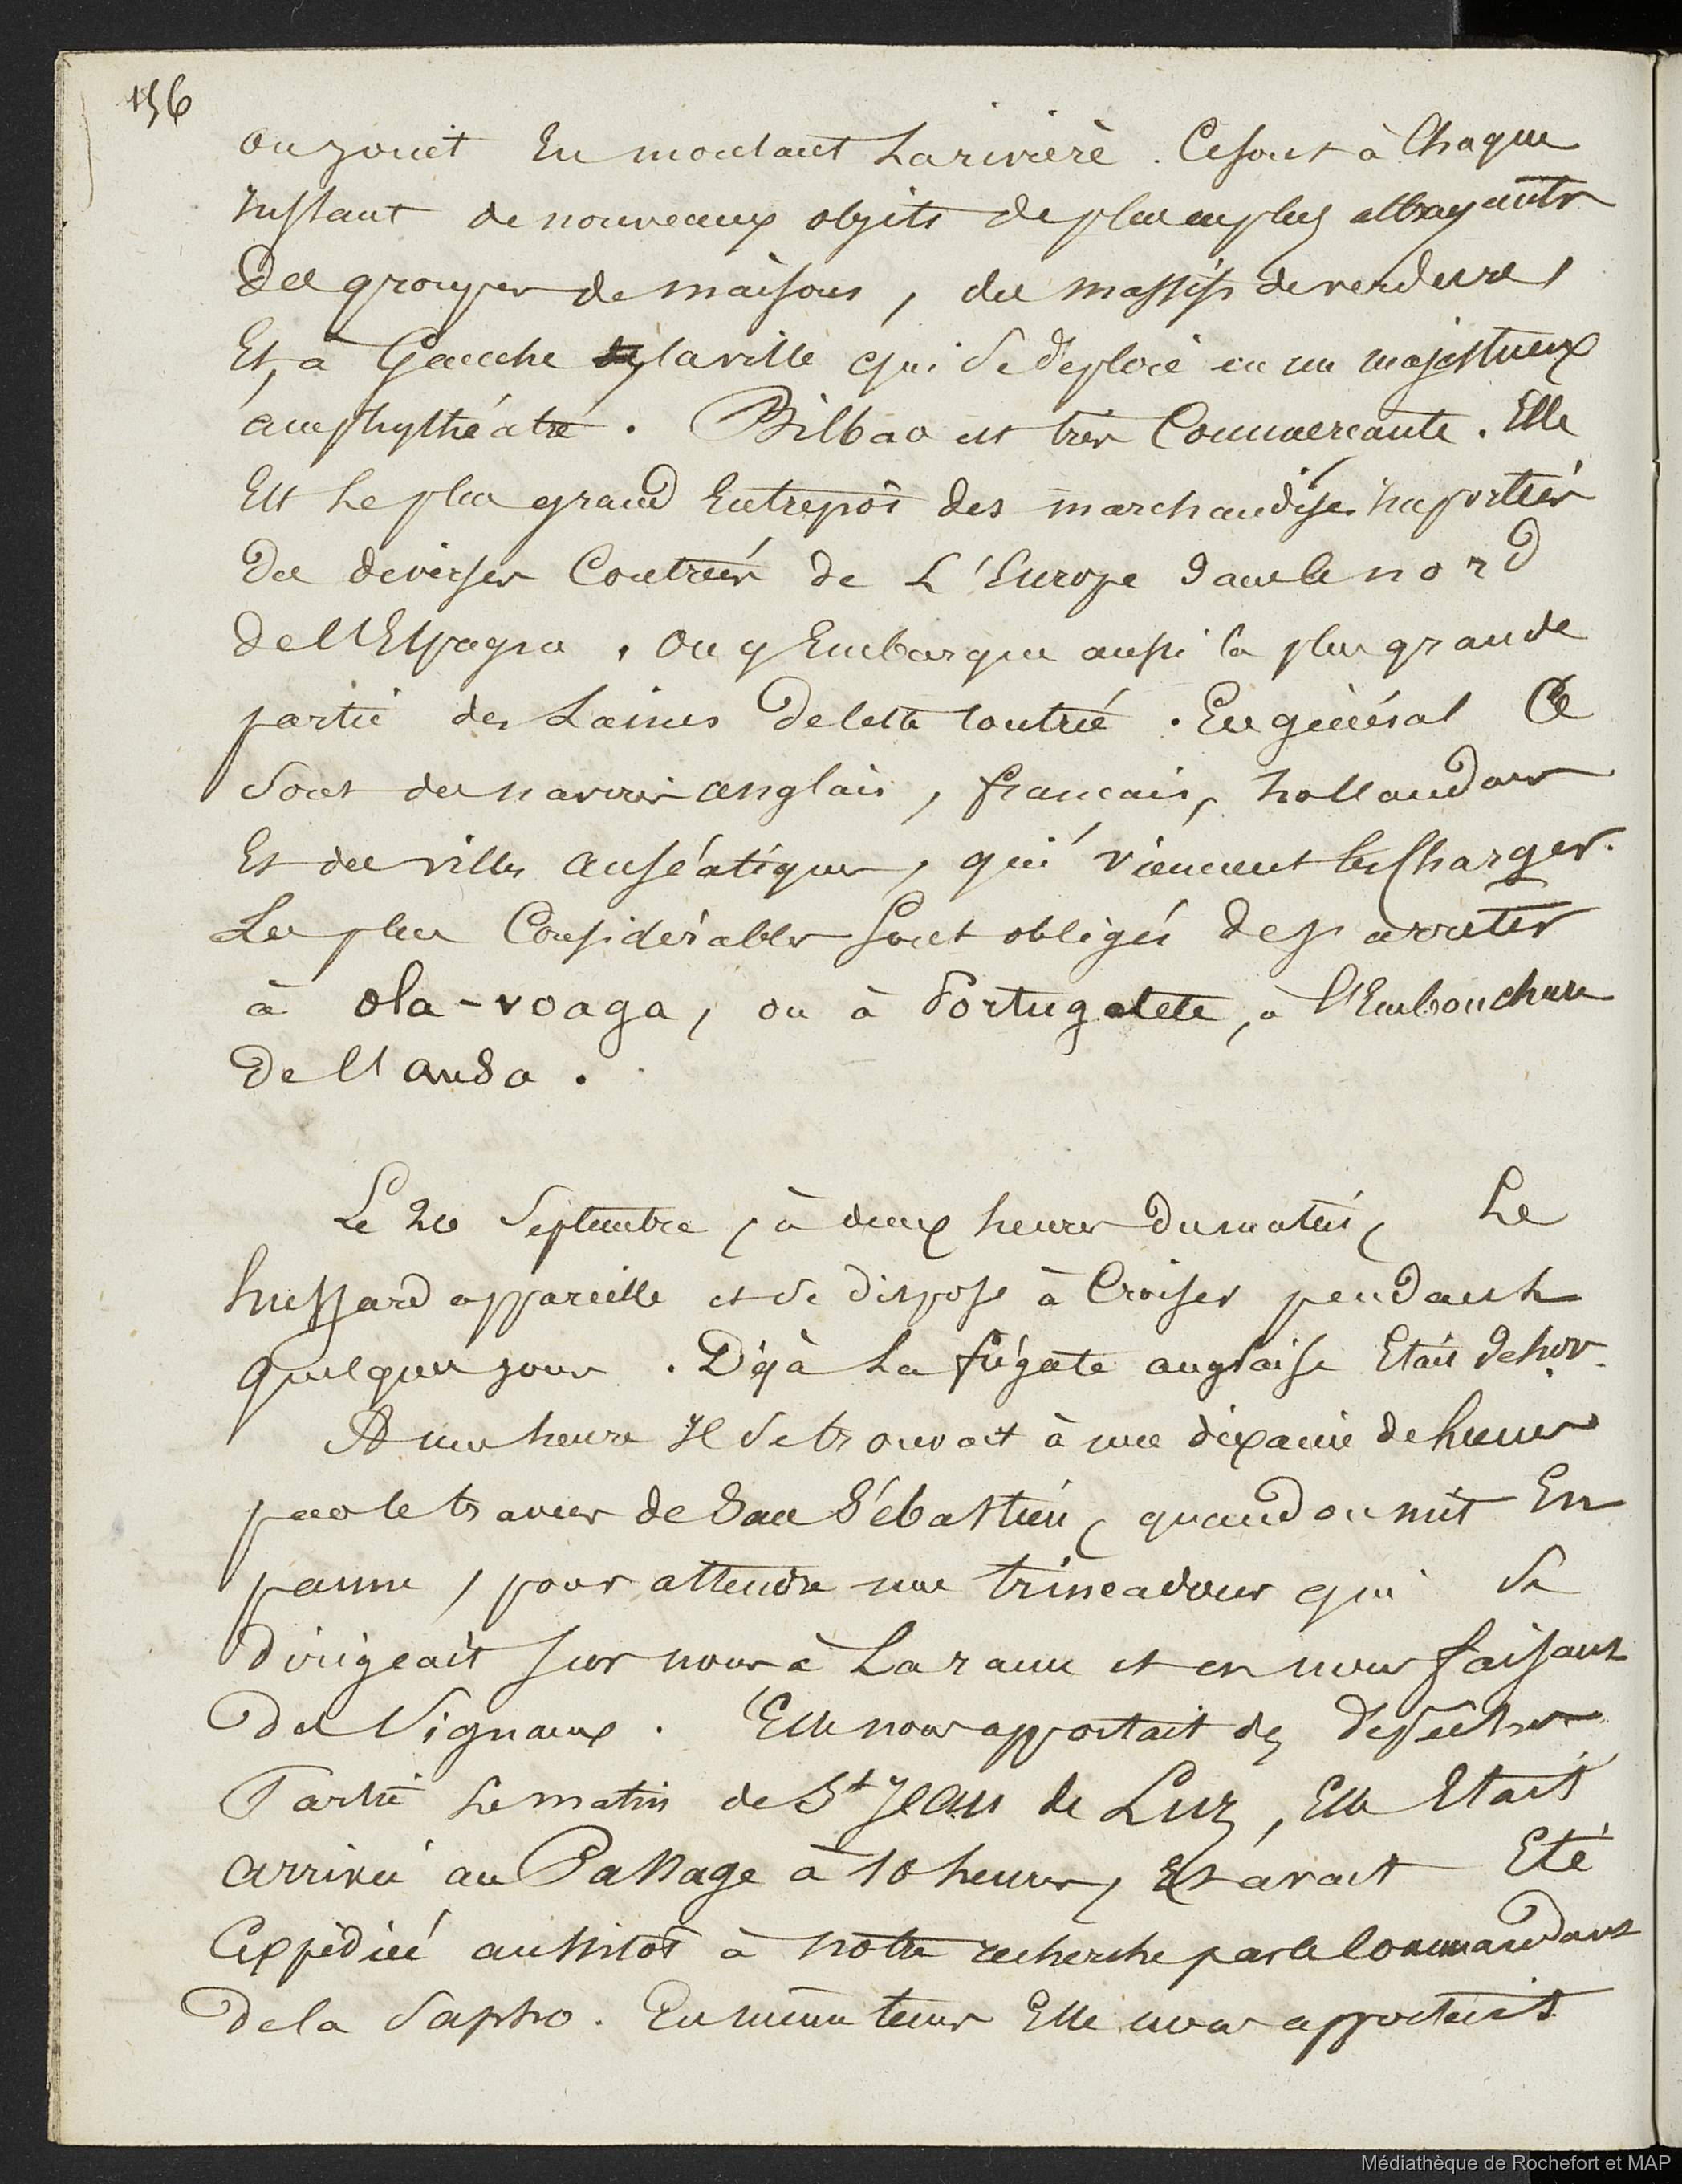 156
on jouit En montant La rivière. Ce sont à Chaque
Instant de nouveaux objets de plus en plus attrayants
Des groupes de maisons, des massifs de verdure,
Et, à Gauche la ville qui se déploie en un majestueux
amphythéatre. Bilbao est très Commerçante. Elle
Est Le plus grand Entrepôt des marchandises Importées
Des diverses Contrées de L'Europe dans le nord
de l'Espagne. On y Embarque aussi la plus grande
partie des Laines de cette contrée. En général Ce
sont des navires anglais, français, hollandais
Et des villes anséatiques, qui viennent les Charger.
Les plus Considérables sont obligés de s'arrêter
à ola-voaga, ou à Portugalette, à l'Embouchure
de l'ansa.
Le 20 Septembre, à deux heures du matin, Le
hussard appareille et se dispose à Croiser pendant
quelques jours. Déjà La frégate anglaise Etait dehors.
A une heure Il se trouvait à une dixaine de lieues
par le travers de San Sébastien, quand on mit En
panne, pour attendre une trincadour qui se
dirigeait sur nous à La rame et en nous faisant
des Signaux. Elle nous apportait des dépêches
Partie Le matin de St Jean de Luz, Elle Etait
arrivée au Passage à 10 heures, Et avait Eté
Expédiée aussitôt à notre recherche par le Commandant
de la Sapho. En même temps Elle nous apportait
Médiathèque de Rochefort et MAP